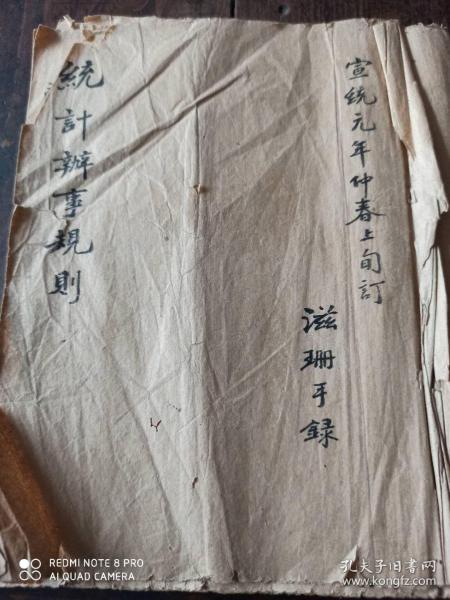 宣統元年仲春上旬訂
滋珊手録
統計辦事規則
REDMI NOTE 8 PRO
AI QUAD CAMERA
孔夫子旧书网
www.kongfz.com